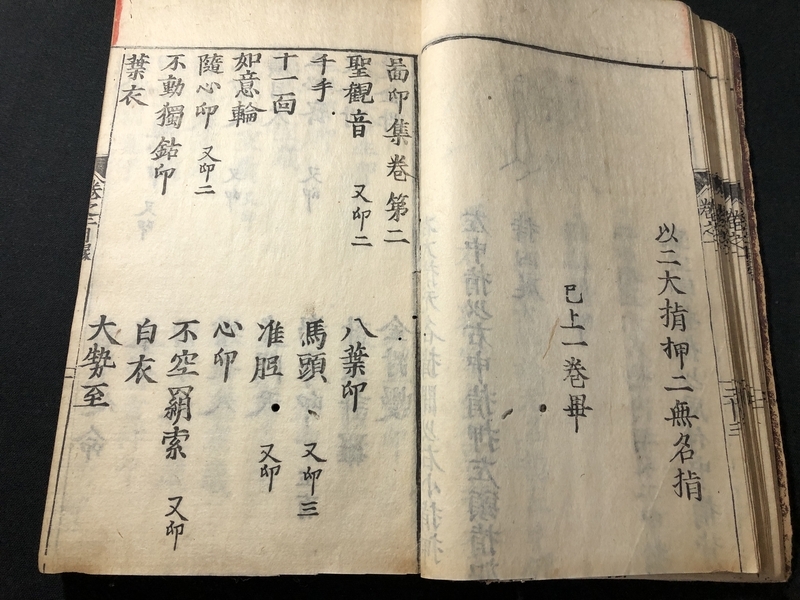 以二大指押二無名指
已上一卷畢
啚印集卷第二
聖觀音 又印二 八葉印
千手 馬頭 又印三
十一面 准胝 又印
如意輪 心印
隨心印 又印二 不空羂索 又印
不動獨鈷印 白衣
葉衣 大勢至
卷之二目録
卷之一
卷之一